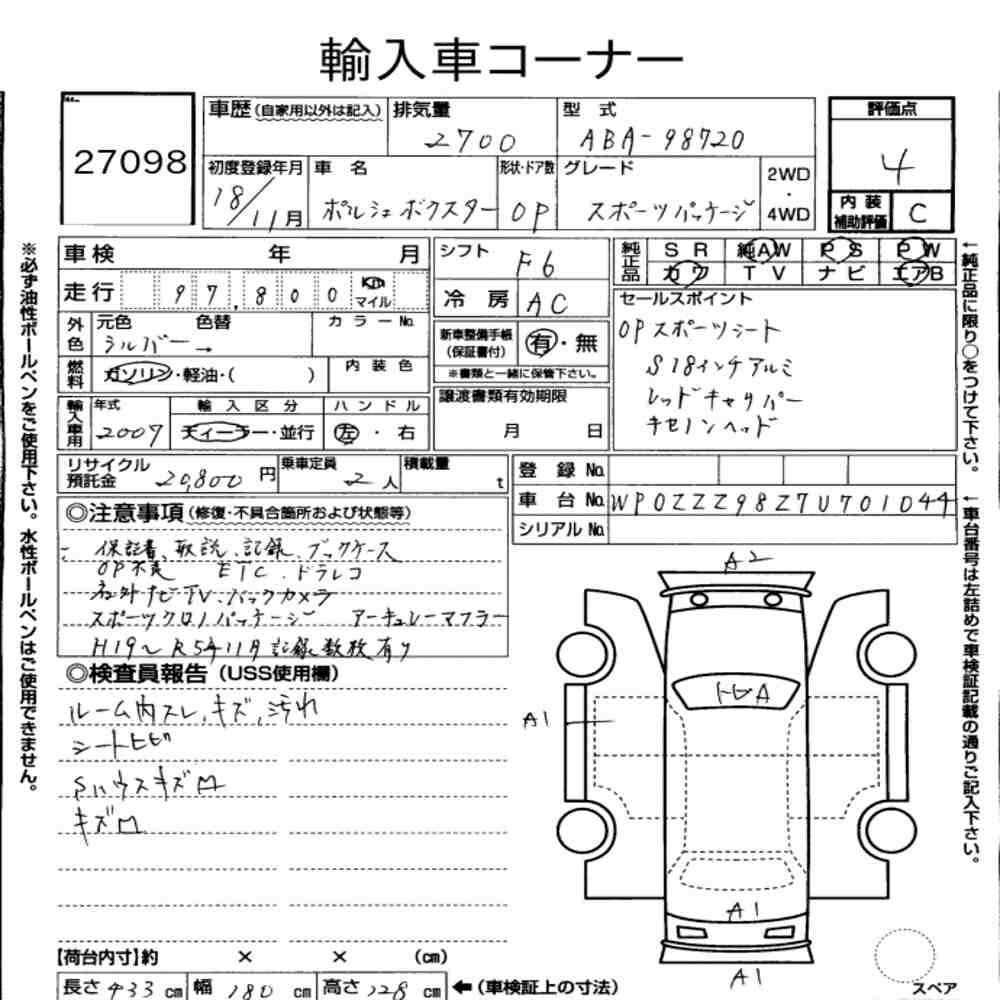 輸入車コーナー
27098
車歴(自家用以外は記入) 排気量 2700 型 式 ABA-98720
初度登録年月 18/11月 車 名 ポルシェ ボクスター 形状・ドア数 OP グレード スポーツパッケージ 2WD・4WD
評価点 4
内装補助評価 C
車検 年 月
走行 97,800 Km マイル
外色 元色 シルバー→ 色替 カラーNo.
燃料 ガソリン・軽油・( ) 内装色
輸入車用 年式 2007 輸入区分 ディーラー・並行 ハンドル 左・右
シフト F6
冷房 AC
新車整備手帳(保証書付) 有・無
※書類と一緒に保管下さい。
譲渡書類有効期限
月 日
純正品 SR 純AW PS PW
カワ TV ナビ エアB
セールスポイント
OPスポーツシート
S 18インチアルミ
レッドキャリパー
キセノンヘッド
リサイクル預託金 20,800円 乗車定員 2人 積載量 t
登録No.
車台No. WP0ZZZ98Z7U701044
シリアルNo.
◎注意事項(修復・不具合箇所および状態等)
保証書、取説、記録、ブックケース
OP不良 ETC.ドラレコ
社外ナビTV.バックカメラ
スポーツクロノパッケージ アーキュレーマフラー
H19～R5年11月記録数枚有り
◎検査員報告(USS使用欄)
ルーム内スレ、キズ、汚れ
シートヒビ
Sハウスキズ
キズ
A2
トビA
A1
A1
A1
スペア
【荷台内寸】約 × × (cm)
長さ 433 cm 幅 180 cm 高さ 128 cm ←(車検証上の寸法)
※必ず油性ボールペンをご使用下さい。水性ボールペンはご使用できません。
←純正品に限り○をつけて下さい。
←車台番号は左詰めで車検証記載の通りご記入下さい。